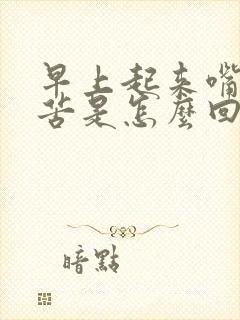 早上起来嘴
苦是怎麼回
暗點